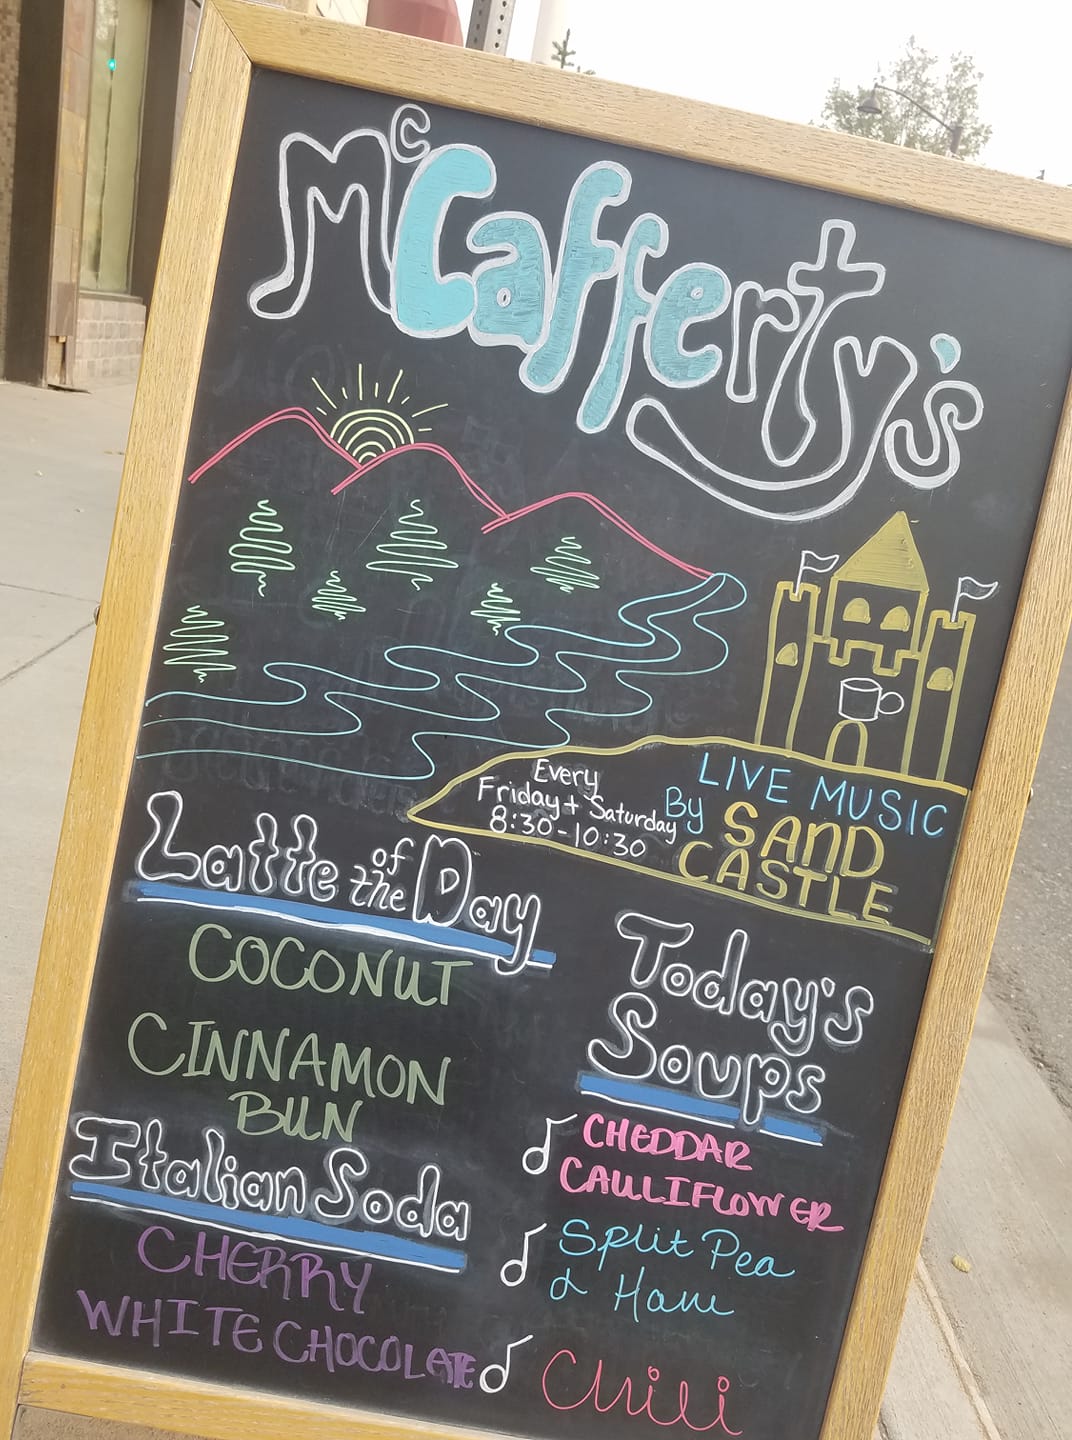 McCafferty's
Every
Friday + Saturday
8:30-10:30
LIVE MUSIC
By SAND
CASTLE
Latte of the Day
COCONUT
CINNAMON
BUN
Italian Soda
CHERRY
WHITE CHOCOLATE
Today's
Soups
CHEDDAR
CAULIFLOWER
Split Pea
& Ham
Chili